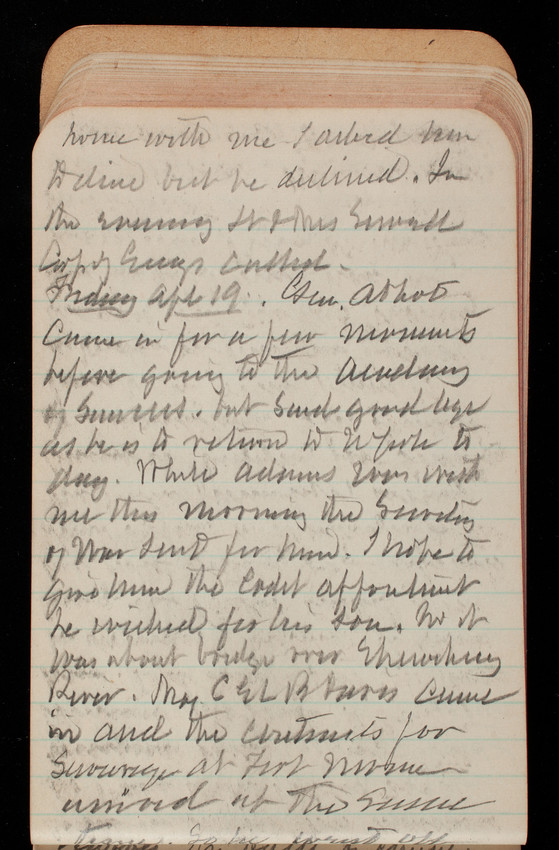 home with me I asked him
to dine but he declined. In
the evening Lt & Mrs Sewell
Corps of Engrs called.
Friday Apl 19. Gen. Abbot
came in for a few moments
before going to the Academy
of Sciences. but said good bye
as he is to return to N York to
day. While Adams was with
me this morning the Secretary
of War sent for him. I hope to
give him the Cadet appointment
he wished for his son. No it
was about bridge over
River. Maj C E L B Davis came
in and the contracts for
Sewerage at Fort Monroe
arrived at the same
time. So he went off